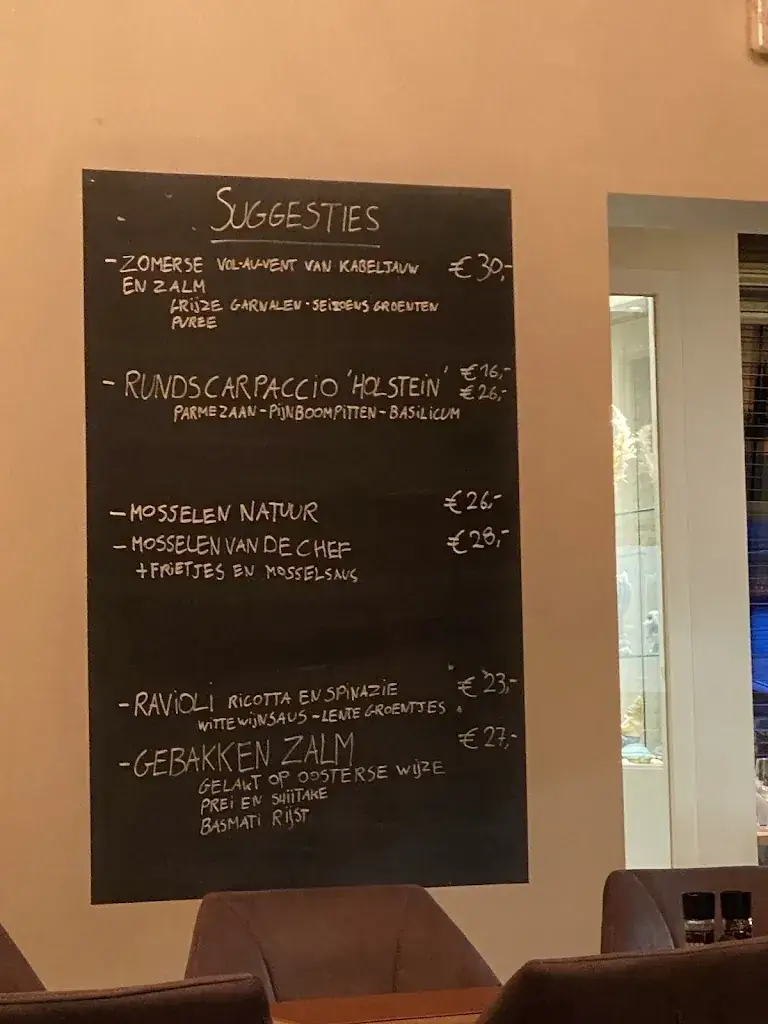 SUGGESTIES
- ZOMERSE VOL-AU-VENT VAN KABELJAUW €30,-
EN ZALM
GRIJZE GARNALEN - SEIZOENS GROENTEN
PUREE
- RUNDSCARPACCIO 'HOLSTEIN' €16,-
€26,-
PARMEZAAN - PIJNBOOMPITTEN - BASILICUM
- MOSSELEN NATUUR €26,-
- MOSSELEN VAN DE CHEF €28,-
+ FRIETJES EN MOSSELSAUS
- RAVIOLI RICOTTA EN SPINAZIE €23,-
WITTE WIJNSAUS - LENTE GROENTJES
- GEBAKKEN ZALM €27,-
GELAKT OP OOSTERSE WIJZE
PREI EN SHIITAKE
BASMATI RIJST